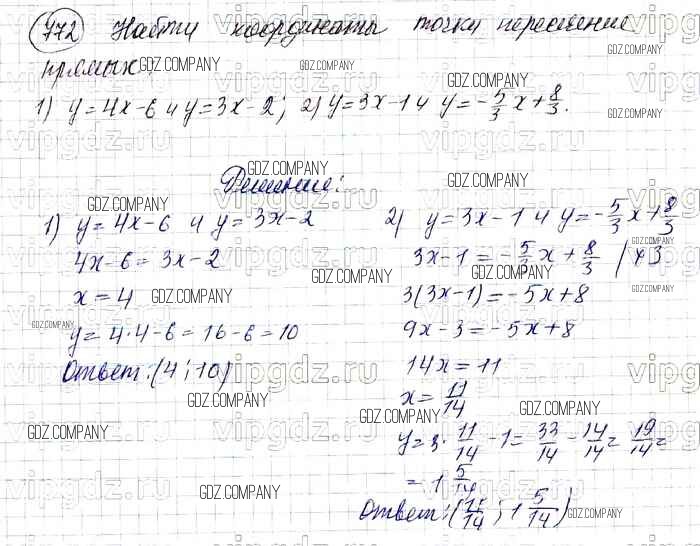 772 Найти координаты точки пересечение
прямых.
1) y=4x-6 и y=3x-2; 2) y=3x-1 и y=-5/3x+8/3.
Решение:
1) y=4x-6 и y=3x-2
4x-6=3x-2
x=4
y=4·4-6=16-6=10
Ответ:(4;10)
2) y=3x-1 и y=-5/3x+8/3
3x-1=-5/3x+8/3 /×3
3(3x-1)=-5x+8
9x-3=-5x+8
14x=11
x=11/14
y=3·11/14-1=33/14-14/14=19/14=
=1 5/14
Ответ:(11/14; 1 5/14)
GDZ.COMPANY
vipgdz.ru